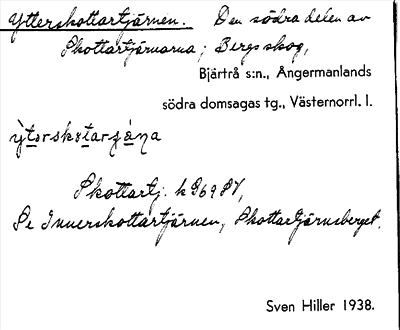 Ytterskottartjärnen. Den södra delen av
Skottartjärnarna; Bergsskog,
Bjärtrå s:n., Ångermanlands
södra domsagas tg., Västernorrl. l.
Skottartj. k
Se Innerskottartjärnen, Skottartjärnsberget.
Sven Hiller 1938.